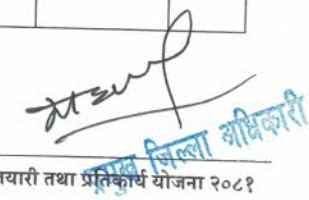 प्रमुख जिल्ला अधिकारी
यारी तथा प्रतिकार्य योजना २०८१